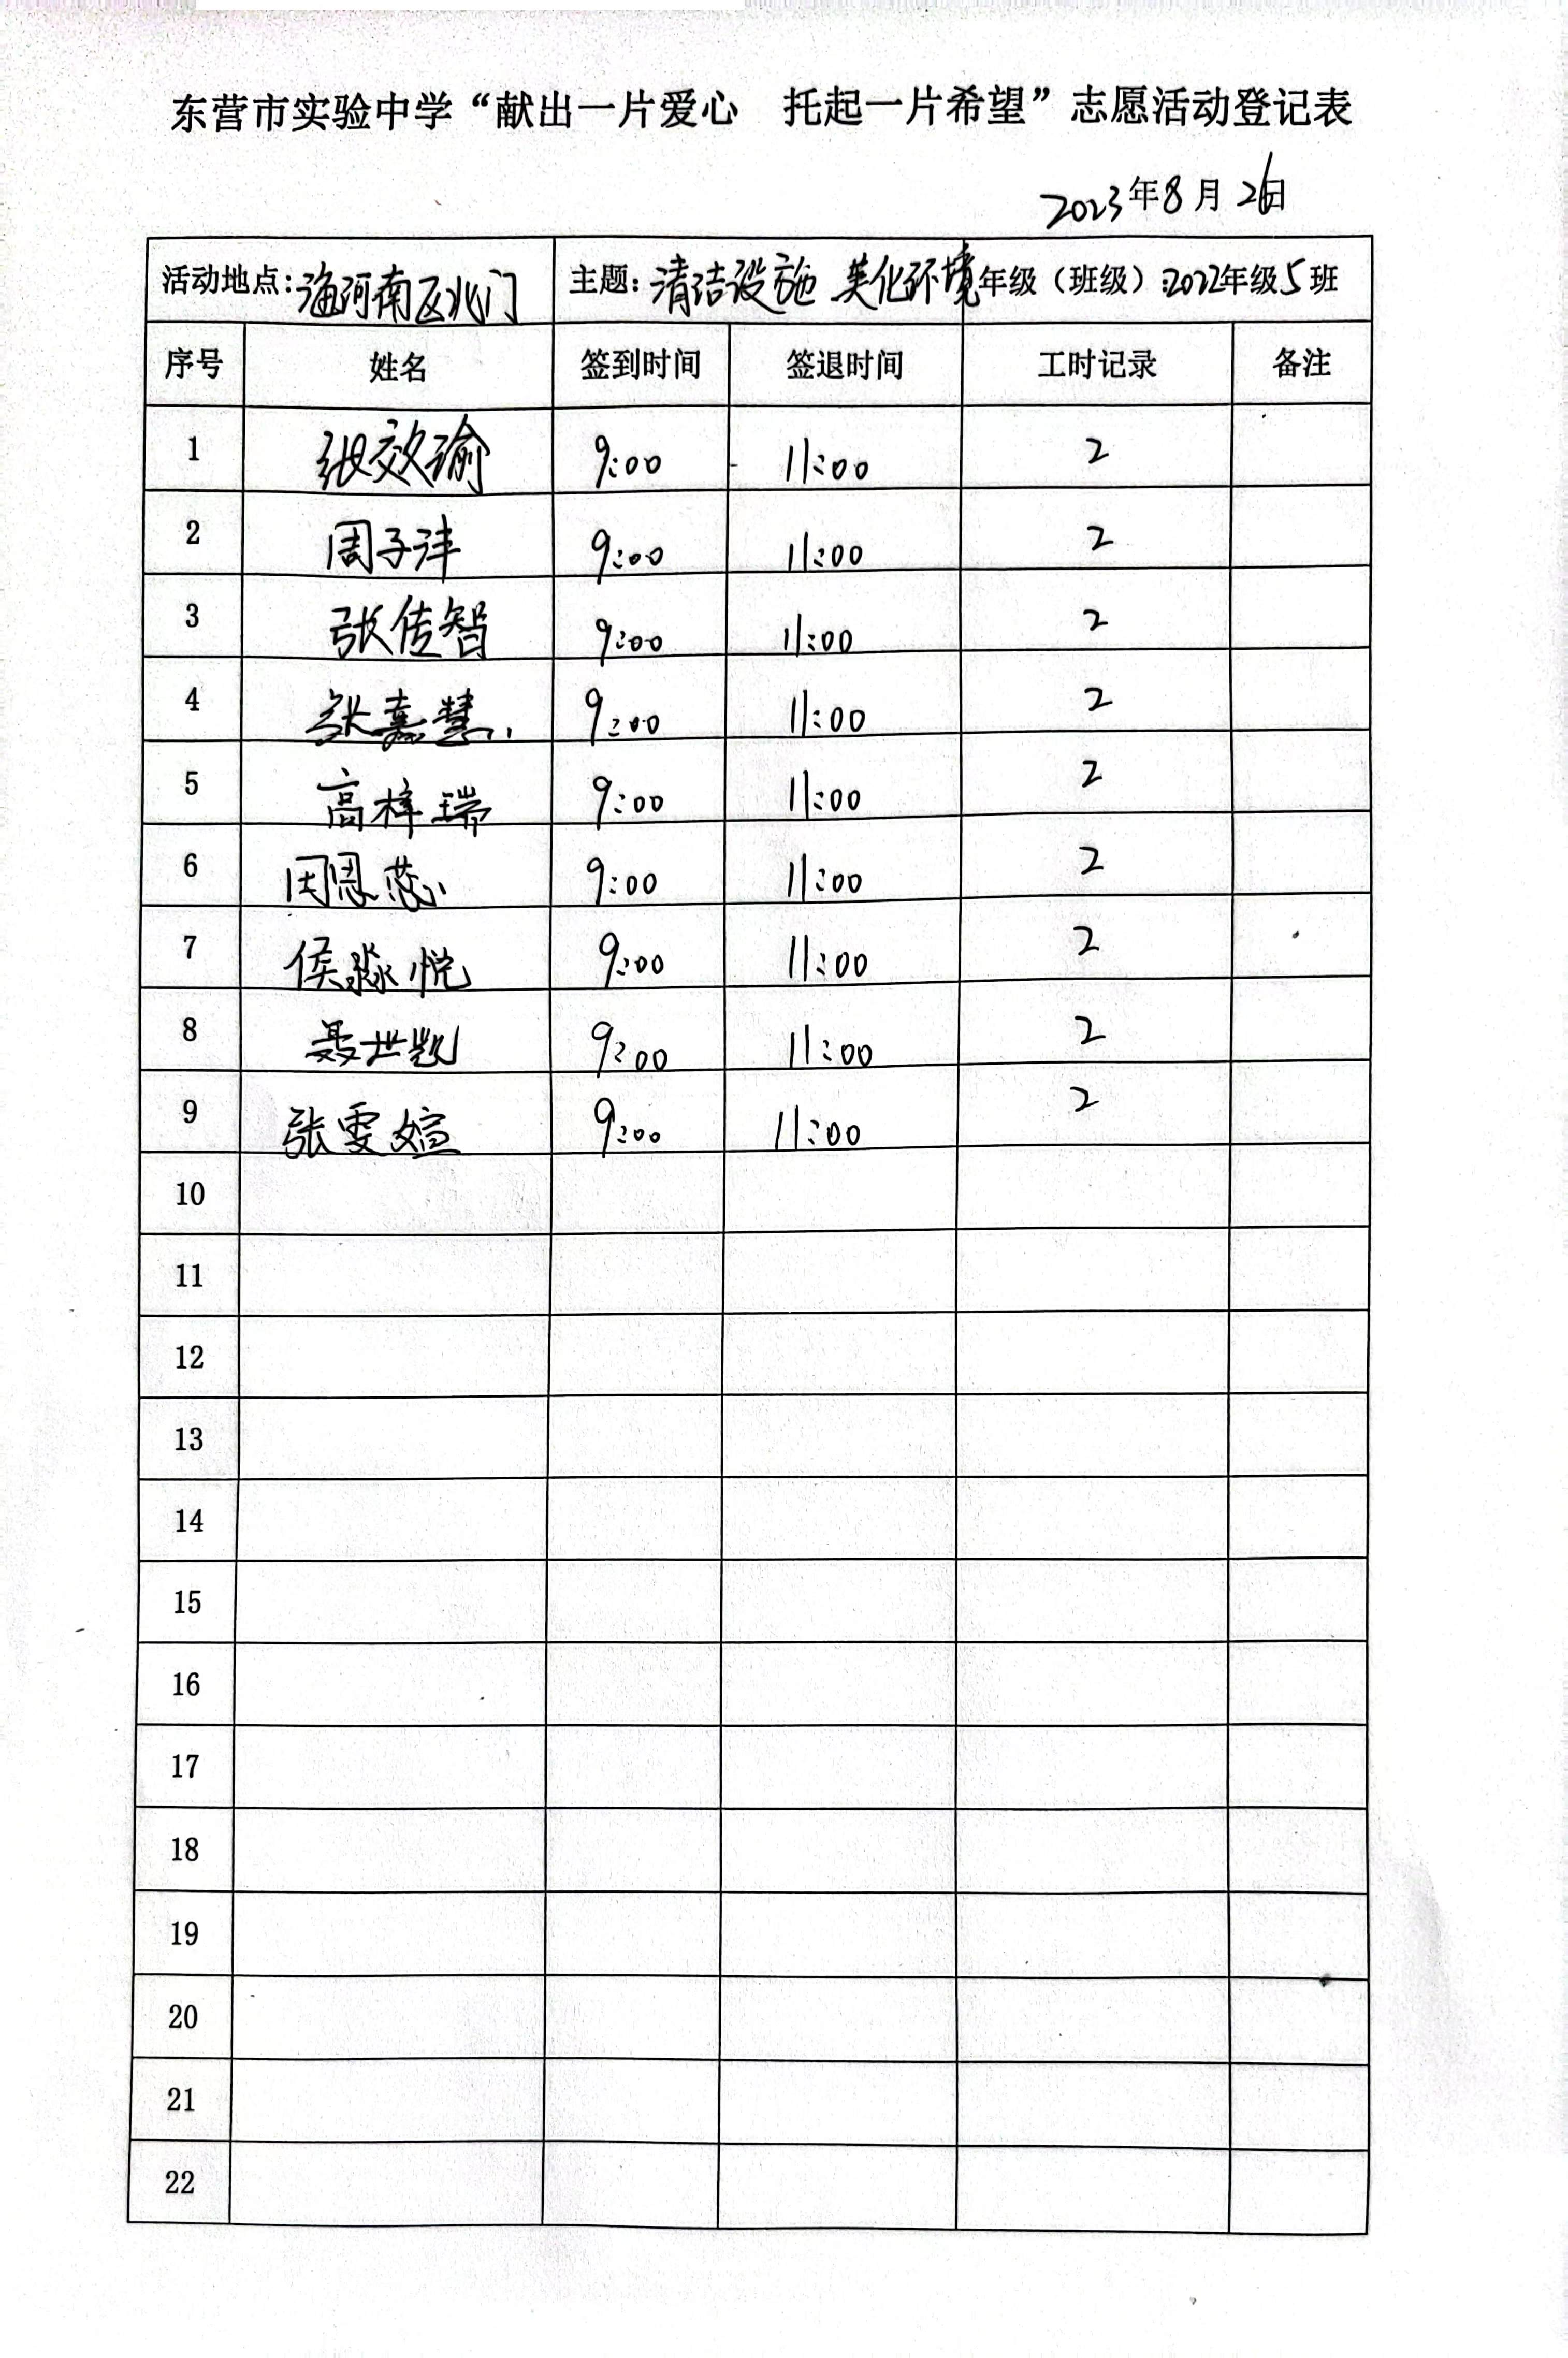 东营市实验中学“献出一片爱心 托起一片希望”志愿活动登记表
2023年8月26日
活动地点:海河南区北门 主题:清洁设施 美化环境 年级（班级）:2022年级5班
序号 姓名 签到时间 签退时间 工时记录 备注
1 张效瑜 9:00 11:00 2
2 周子沣 9:00 11:00 2
3 张传智 9:00 11:00 2
4 张嘉慧 9:00 11:00 2
5 高梓瑞 9:00 11:00 2
6 9:00 11:00 2
7 侯淼悦 9:00 11:00 2
8 聂世凯 9:00 11:00 2
9 张雯媗 9:00 11:00 2
10
11
12
13
14
15
16
17
18
19
20
21
22